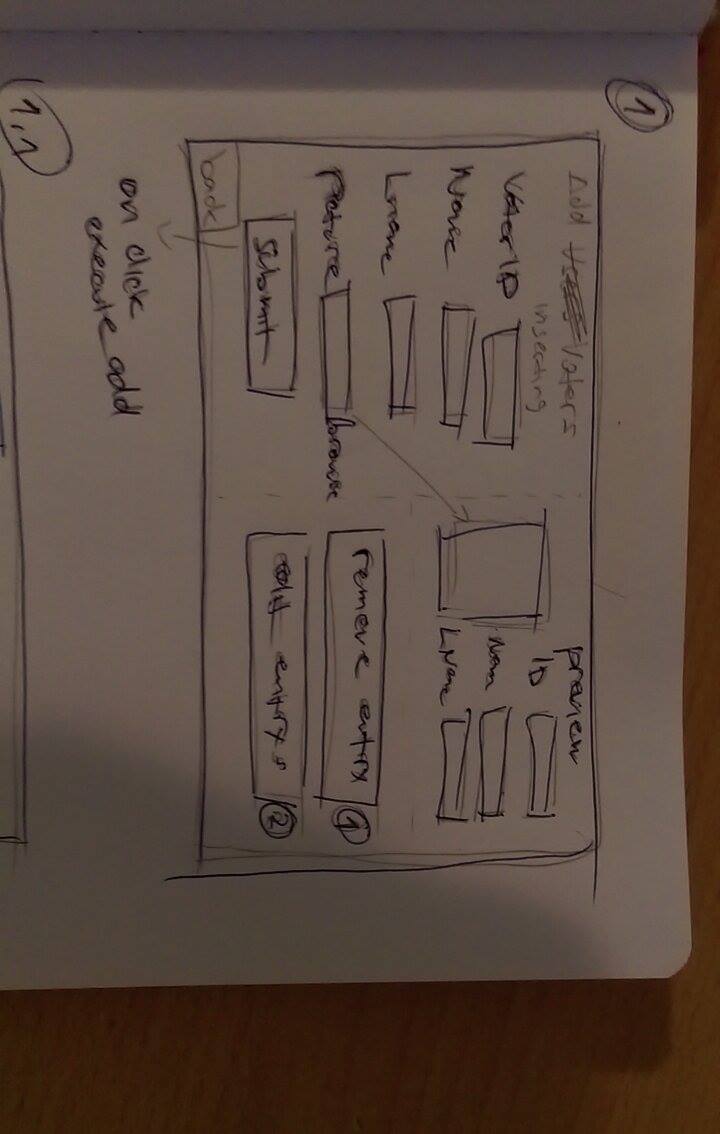 1
Add Voters
Inserting
VoterID
Name
Lname
Picture browse
Submit
back
preview
ID
Nam
LName
remove entry 1
edit entry 2
on click
execute add
1.1